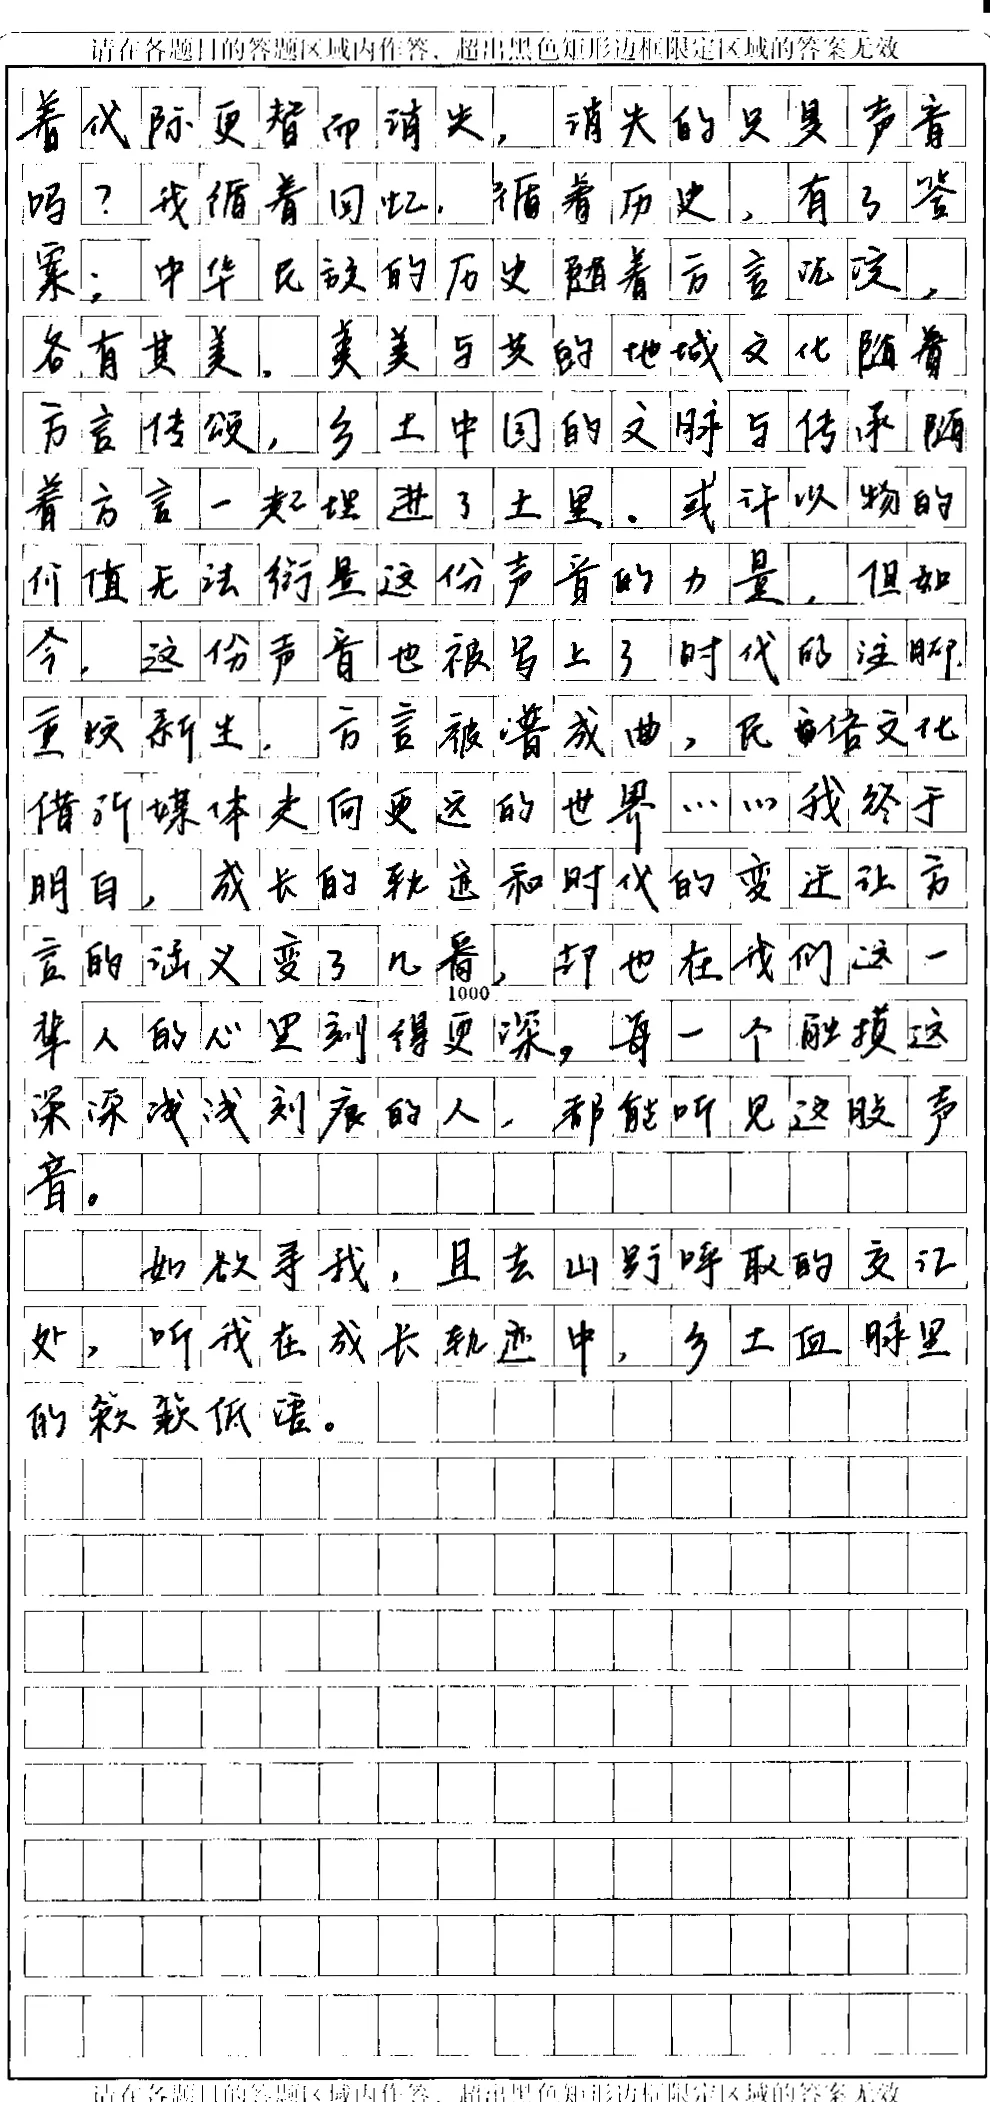 请在各题目的答题区域内作答，超出黑色矩形边框限定区域的答案无效
着代际更替而消失，消失的只是声音
吗？我循着回忆，循着历史，有了答
案；中华民族的历史随着方言沉淀，
各有其美，美美与共的地域文化随着
方言传颂，乡土中国的文脉与传承随
着方言一起埋进了土里。或许以物的
价值无法衡量这份声音的力量，但如
今，这份声音也被写上了时代的注脚，
重焕新生。方言被谱成曲，民俗文化
借新媒体走向更远的世界……我终于
明白，成长的轨迹和时代的变迁让方
言的涵义变了几番，却也在我们这一
1000
辈人的心里刻得更深，每一个触摸这
深深浅浅刻痕的人，都能听见这股声
音。
如欲寻我，且去山野呼取的交汇
处，听我在成长轨迹中，乡土血脉里
的簌簌低语。
请在各题目的答题区域内作答，超出黑色矩形边框限定区域的答案无效